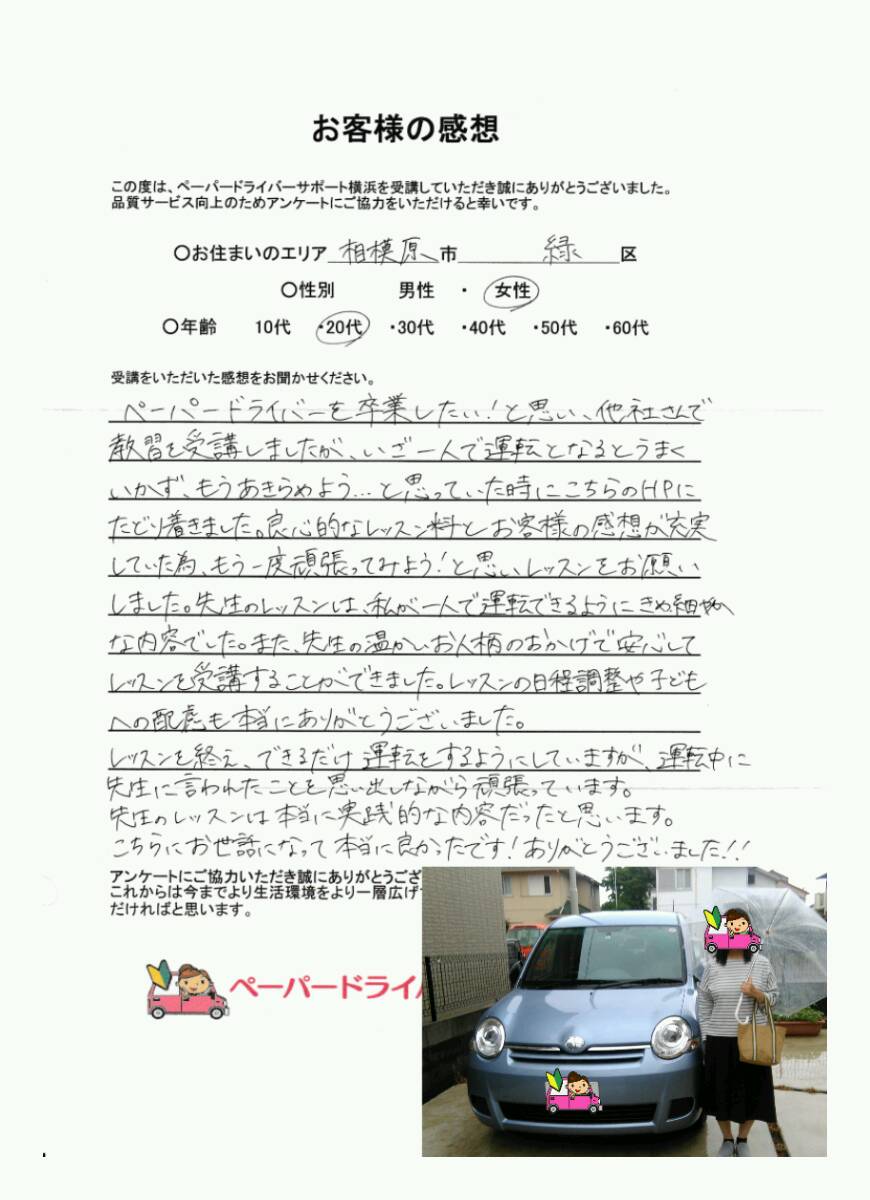 お客様の感想
この度は、ペーパードライバーサポート横浜を受講していただき誠にありがとうございました。
品質サービス向上のためアンケートにご協力をいただけると幸いです。
〇お住まいのエリア 相模原 市 緑 区
〇性別 男性 ・ 女性
〇年齢 10代 ・20代 ・30代 ・40代 ・50代 ・60代
受講をいただいた感想をお聞かせください。
ペーパードライバーを卒業したい!と思い、他社さんで
教習を受講しましたが、いざ一人で運転となるとうまく
いかず、もうあきらめよう…と思っていた時にこちらのHPに
たどり着きました。良心的なレッスン料とお客様の感想が充実
していた為、もう一度頑張ってみよう!と思いレッスンをお願い
しました。先生のレッスンは、私が一人で運転できるようにきめ細やか
な内容でした。また、先生の温かいお人柄のおかげで安心して
レッスンを受講することができました。レッスンの日程調整や子ども
への配慮も本当にありがとうございました。
レッスンを終え、できるだけ運転をするようにしていますが、運転中に
先生に言われたことを思い出しながら頑張っています。
先生のレッスンは本当に実践的な内容だったと思います。
こちらにお世話になって本当に良かったです!ありがとうございました!!
アンケートにご協力いただき誠にありがとうござ
これからは今までより生活環境をより一層広げ
だければと思います。
ペーパードライ